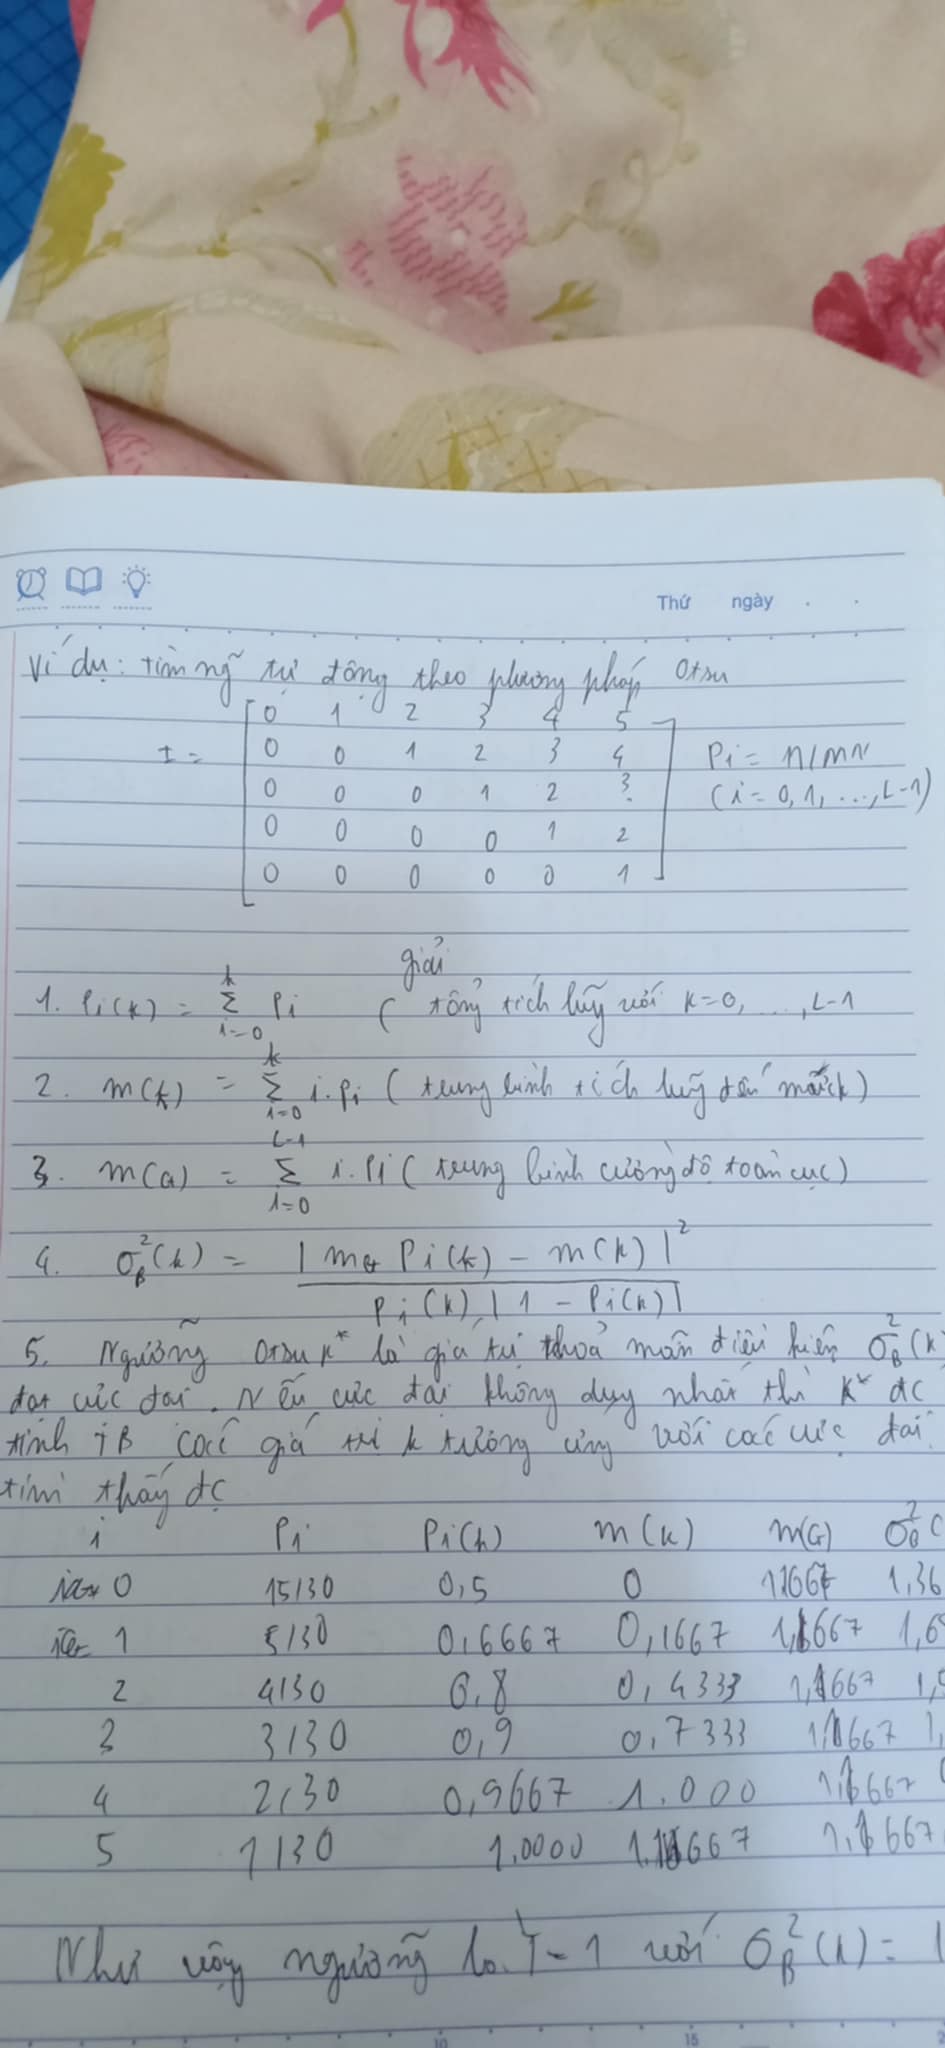 Thứ ngày
Ví dụ: tìm ngỡ tự động theo phương pháp Otsu
0 1 2 3 4 5
I = 0 0 1 2 3 4 Pi = n/MN
0 0 0 1 2 3 (i = 0, 1, ..., L-1)
0 0 0 0 1 2
0 0 0 0 0 1
giải
1. Pi(k) = k Σ i=0 Pi ( tổng tích luỹ với k=0, ..., L-1
2. m(k) = k Σ i=0 i.Pi ( trung bình tích luỹ đến k)
3. m(G) = L-1 Σ i=0 i.Pi ( trung bình cường độ toàn cục)
4. σ²B(k) = | mG Pi(k) - m(k) |²
Pi(k) | 1 - Pi(k) |
5. Ngưỡng Otsu k* là giá trị thoả mãn điều kiện σ²B(k
đạt cực đại. Nếu cực đại không duy nhất thì k* đc
tính TB các giá trị k tương ứng với các cực đại
tìm thấy đc
i Pi Pi(k) m(k) m(G) σ²B(
0 15/30 0,5 0 1,1667 1,36
1 5/30 0,6667 0,1667 1,1667 1,6
2 4/30 0,8 0,4333 1,1667 1,
3 3/30 0,9 0,7333 1,1667 1,
4 2/30 0,9667 1.000 1,1667
5 1/30 1,0000 1.1667 1.1667
Như vậy ngưỡng là T = 1 với σ²B(k) = 1
10 15 2